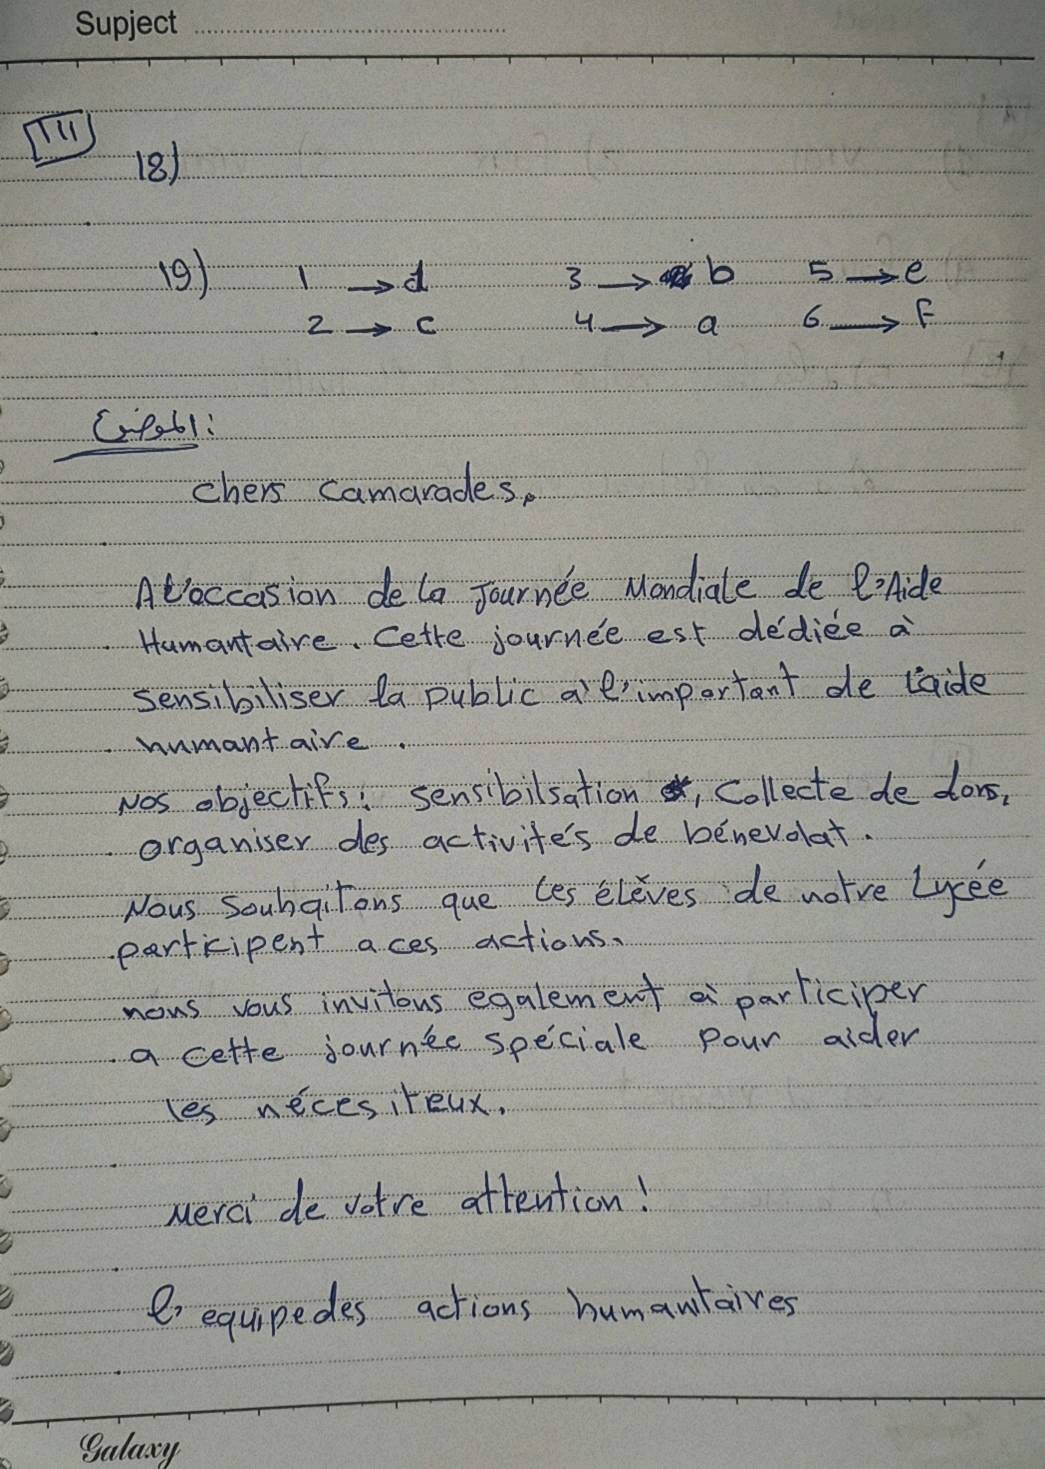 Supject
III
18)
19) 1 → d 3 → b 5 → e
2 → c 4 → a 6 → F
الموضوع:
chers camarades,
A l'occasion de la Journée Mondiale de l'Aide
Humantaire. Cette journée est dédiée à
sensibiliser la public à l'important de l'aide
humantaire.
Nos objectifs: sensibilsation, Collecte de dons,
organiser des activités de bénevolat.
Nous souhaitons que les élèves de notre Lycée
participent a ces actions.
nous vous invitons egalement à participer
a cette journée spéciale pour aider
les nécesiteux.
Merci de votre attention!
l'equipe des actions humanitaires
Galaxy